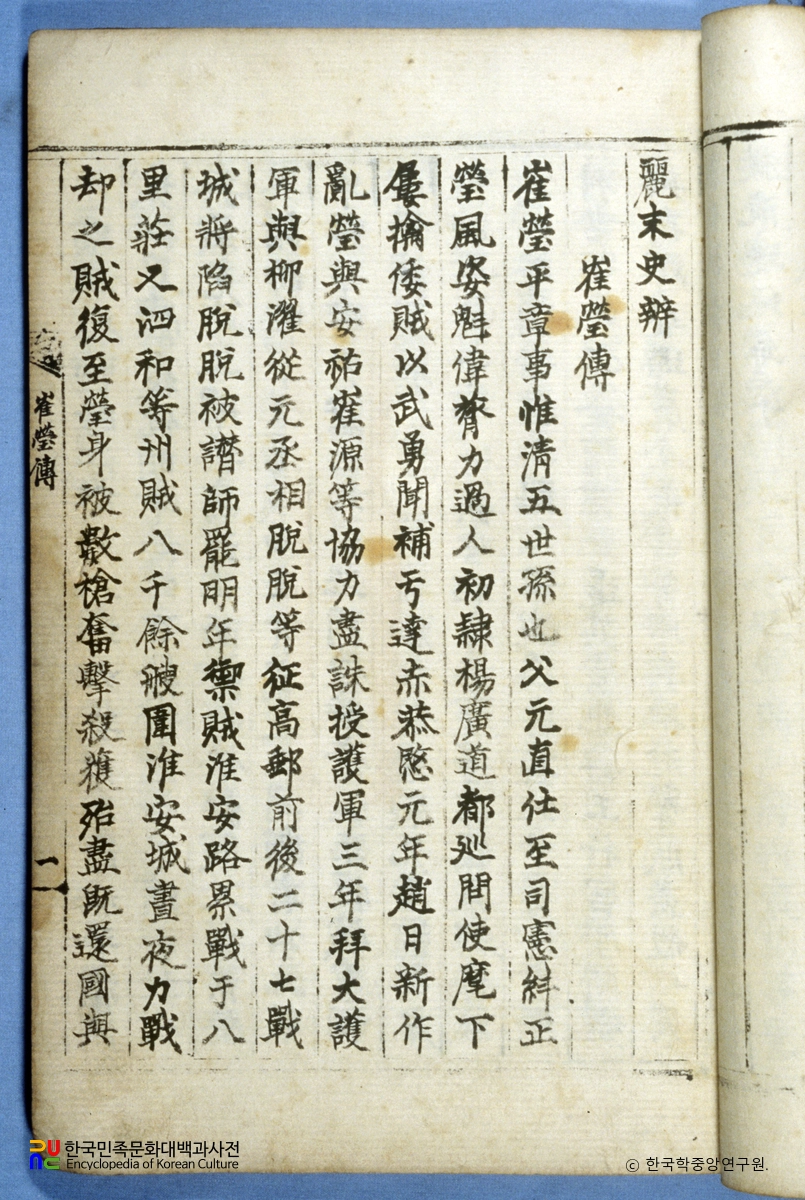 麗末史辨
崔瑩傳
崔瑩平章事惟清五世孫也父元直仕至司憲糾正
瑩風姿魁偉膂力過人初隷楊廣道都廵問使麾下
屢擒倭賊以武勇聞補亐達赤恭愍元年趙日新作
亂瑩與安祐崔源等恊力盡誅授護軍三年拜大護
軍與柳濯從元丞相脫脫等征高郵前後二十七戰
城將陷脫脫被譖師罷明年禦賊淮安路累戰于八
里莊又泗和等州賊八千餘艘圍淮安城晝夜力戰
却之賊復至瑩身被數槍奮擊殺獲殆盡旣還國與
崔瑩傳
一
한국민족문화대백과사전
Encyclopedia of Korean Culture
ⓒ 한국학중앙연구원.